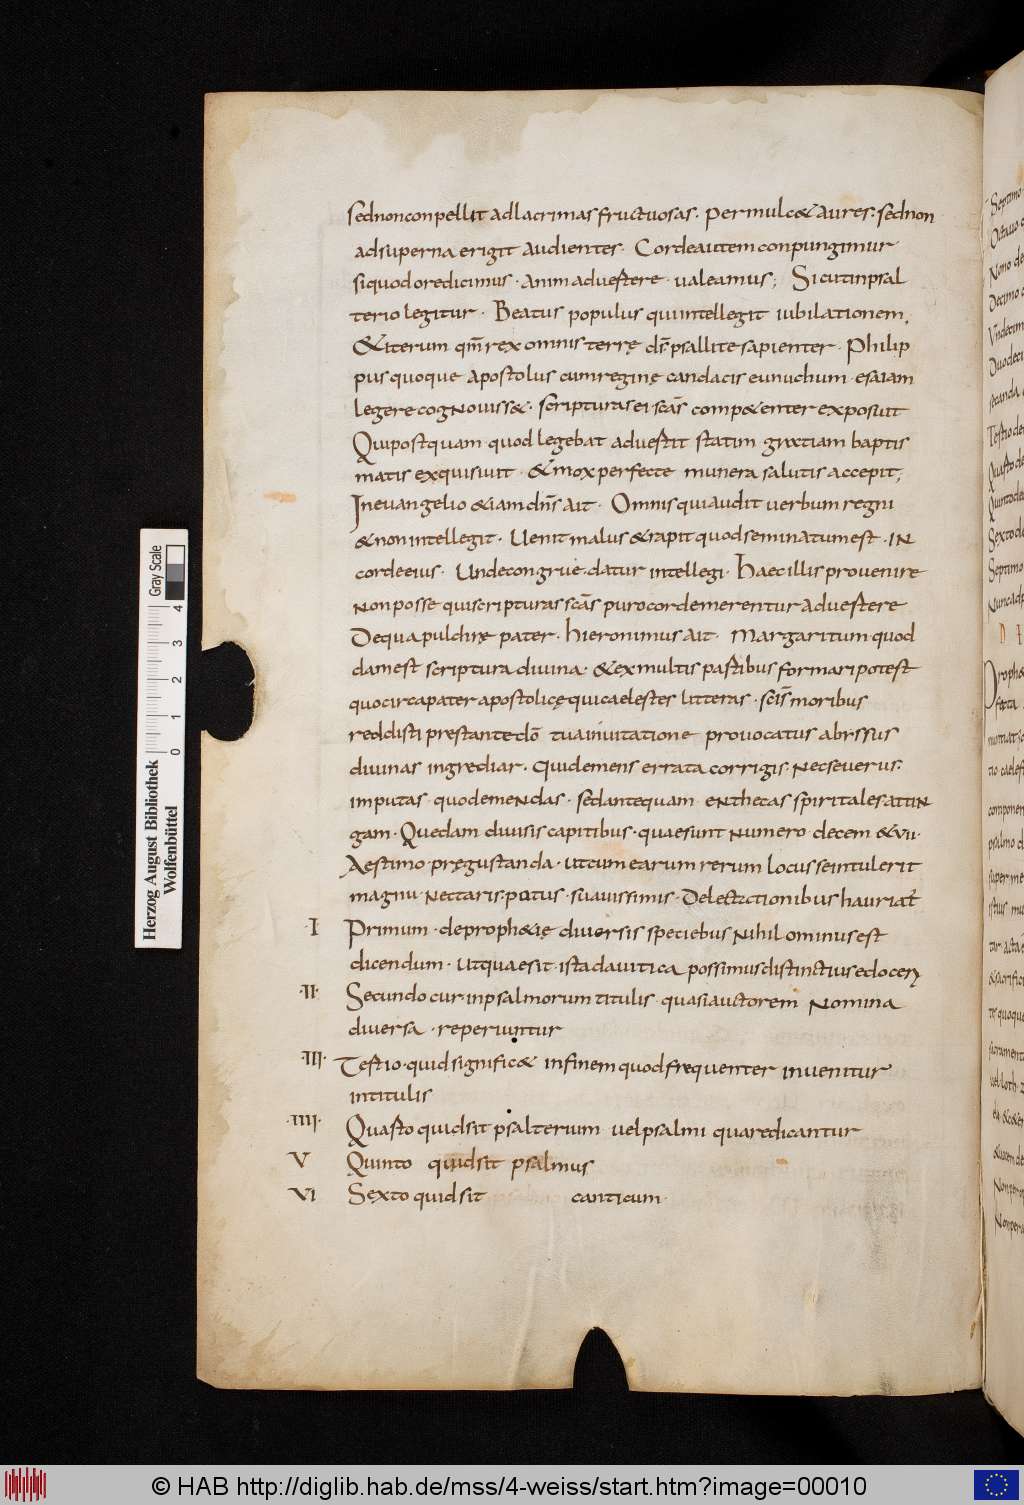 sed non conpellit ad lacrimas fructuosas. Permulc& aures. sed non
ad superna erigit audientes. Corde autem conpungimur
si quod ore dicimus. animaduertere. ualeamus; Sicut in psal
terio legitur. Beatus populus qui intellegit iubilationem.
& iterum qm̄ rex omnis terrę ds̄ psallite sapienter. Philip
pus quoque apostolus cum reginę candacis eunuchum. esaiam
legere cogNouiss&. scripturas ei scās comp&enter exposuit
Qui postquam quod legebat aduertit statim gratiam baptis
matis exquisiuit. & mox perfecte munera salutis accepit;
In euangelio &iam dn̄s ait. Omnis qui audit uerbum regni
& non intellegit. Uenit malus & rapit quod seminatum est. IN
corde eius. Unde congrue. datur intellegi. Haec illis prouenire
Non posse qui scripturas scās puro corde merentur aduertere
De qua pulchrę pater. hieronimus ait. Margaritum quod
dam est scriptura diuina. & ex multis partibus formari potest
quocirca pater apostolicę qui caelestes litteras. scīs moribus
reddisti prestante dō tua inuitatione prouocatus abyssus
diuinas ingrediar. Qui demens errata corrigis. Nec seuerus.
imputas quod emeNdas. sed antequam eNthecas spiritales attiN
gam. Quedam diuisis capitibus. quae sunt Numero decem & vii.
Aestimo pręgustanda. ut cum earum rerum locus se intulerit
magnu Nectaris. potus. suauissimis. Delectationibus hauriat̄
.I Primum. de proph&ię diuersis speciebus Nihilominus est
dicendum. ut qua e sit. ista dauitica possimus distinctius edocerī
.II. Secundo cur. in psalmorum titulis quasi auctorem Nomina
diuersa. reperiuntur
.III. Tertio. quid signific& in finem quod frequenter inuenitur
in titulis
.IIII. Quarto quid sit psalterium uel psalmi quare dicantur
V Quinto quid sit psalmus
VI Sexto quid sit canticum
Herzog August Bibliothek
Wolfenbüttel
Gray Scale
0 1 2 3 4
© HAB http://diglib.hab.de/mss/4-weiss/start.htm?image=00010